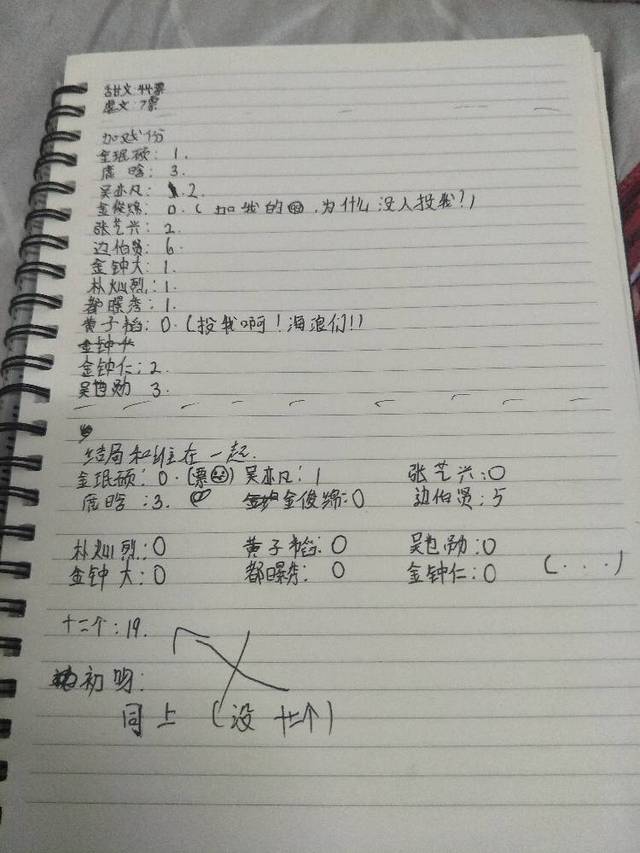 甜文:44票
虐文:7票
加戏份
金珉硕:1.
鹿晗:3.
吴亦凡:2.
金俊绵:0.(加我的,为什么没人投我?)
张艺兴:2
边伯贤:6
金钟大:1.
朴灿烈:1.
都暻秀:1.
黄子韬:0.(投我啊!海浪们!)
金钟大
金钟仁:2.
吴世勋 3.
结局和谁在一起.
金珉硕:0.(票) 吴亦凡:1 张艺兴:0
鹿晗:3. 金俊绵:0 边伯贤:5
朴灿烈:0 黄子韬:0 吴世勋:0
金钟大:0 都暻秀:0 金钟仁:0 (...)
十二个:19.
初吻:
同上(没十二个)